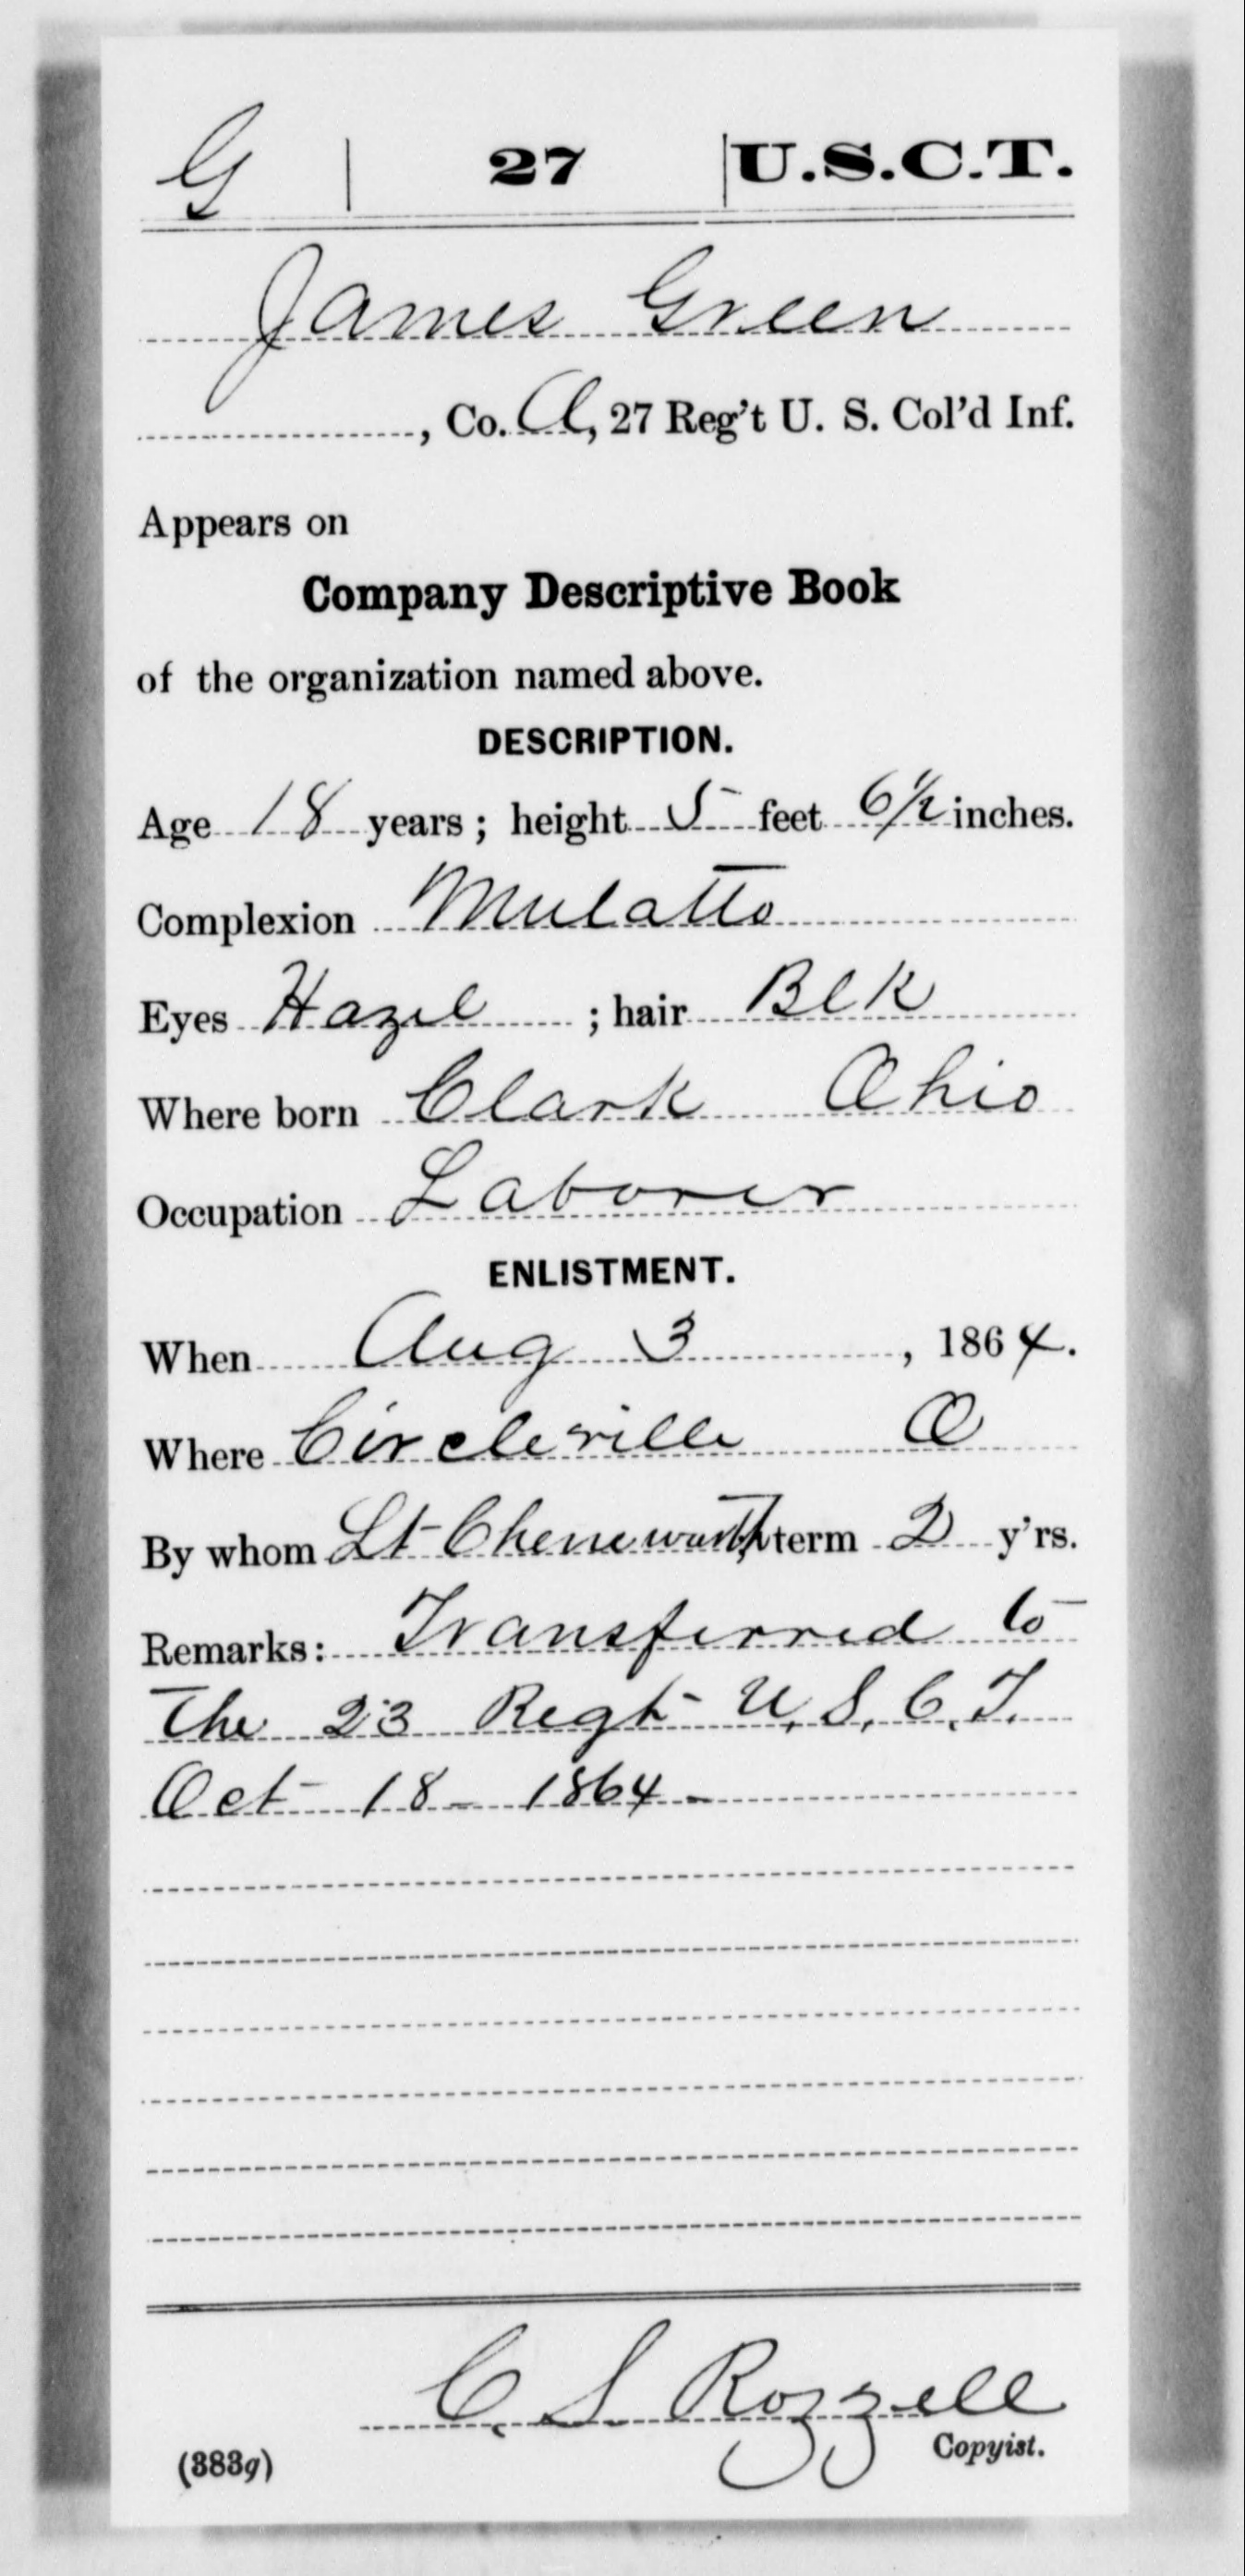 G | 27 | U.S.C.T.
James Green
, Co. A, 27 Reg't U. S. Col'd Inf.
Appears on
Company Descriptive Book
of the organization named above.
DESCRIPTION.
Age 18 years; height 5 feet 6½ inches.
Complexion Mulatto
Eyes Hazel ; hair Blk
Where born Clark Ohio
Occupation Laborer
ENLISTMENT.
When Aug 3 , 1864.
Where Circleville O
By whom Lt Cheneworth, term 2 y'rs.
Remarks: Transferred to
The 23 Regt U.S.C.T.
Oct 18 - 1864 -
C. S. Rozzell
Copyist.
(383g)